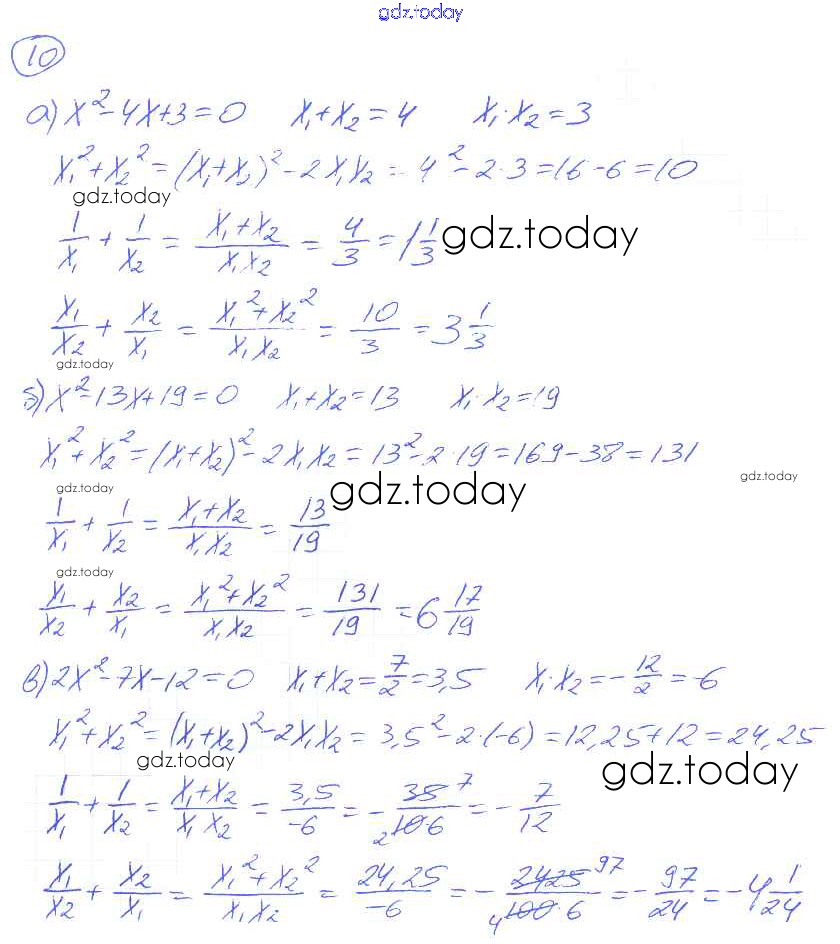 gdz.today
10
а) x² - 4x + 3 = 0 x₁ + x₂ = 4 x₁ · x₂ = 3
x₁² + x₂² = (x₁ + x₂)² - 2x₁x₂ = 4² - 2 · 3 = 16 - 6 = 10
gdz.today
1/x₁ + 1/x₂ = (x₁ + x₂)/(x₁x₂) = 4/3 = 1 1/3 gdz.today
x₁/x₂ + x₂/x₁ = (x₁² + x₂²)/(x₁x₂) = 10/3 = 3 1/3
gdz.today
б) x² - 13x + 19 = 0 x₁ + x₂ = 13 x₁ · x₂ = 19
x₁² + x₂² = (x₁ + x₂)² - 2x₁x₂ = 13² - 2 · 19 = 169 - 38 = 131
gdz.today
gdz.today gdz.today
1/x₁ + 1/x₂ = (x₁ + x₂)/(x₁x₂) = 13/19
gdz.today
x₁/x₂ + x₂/x₁ = (x₁² + x₂²)/(x₁x₂) = 131/19 = 6 17/19
в) 2x² - 7x - 12 = 0 x₁ + x₂ = 7/2 = 3,5 x₁ · x₂ = - 12/2 = -6
x₁² + x₂² = (x₁ + x₂)² - 2x₁x₂ = 3,5² - 2 · (-6) = 12,25 + 12 = 24,25
gdz.today gdz.today
1/x₁ + 1/x₂ = (x₁ + x₂)/(x₁x₂) = 3,5/-6 = - 35 7/2 10 · 6 = - 7/12
x₁/x₂ + x₂/x₁ = (x₁² + x₂²)/(x₁x₂) = 24,25/-6 = - 2425 97/4 100 · 6 = - 97/24 = -4 1/24